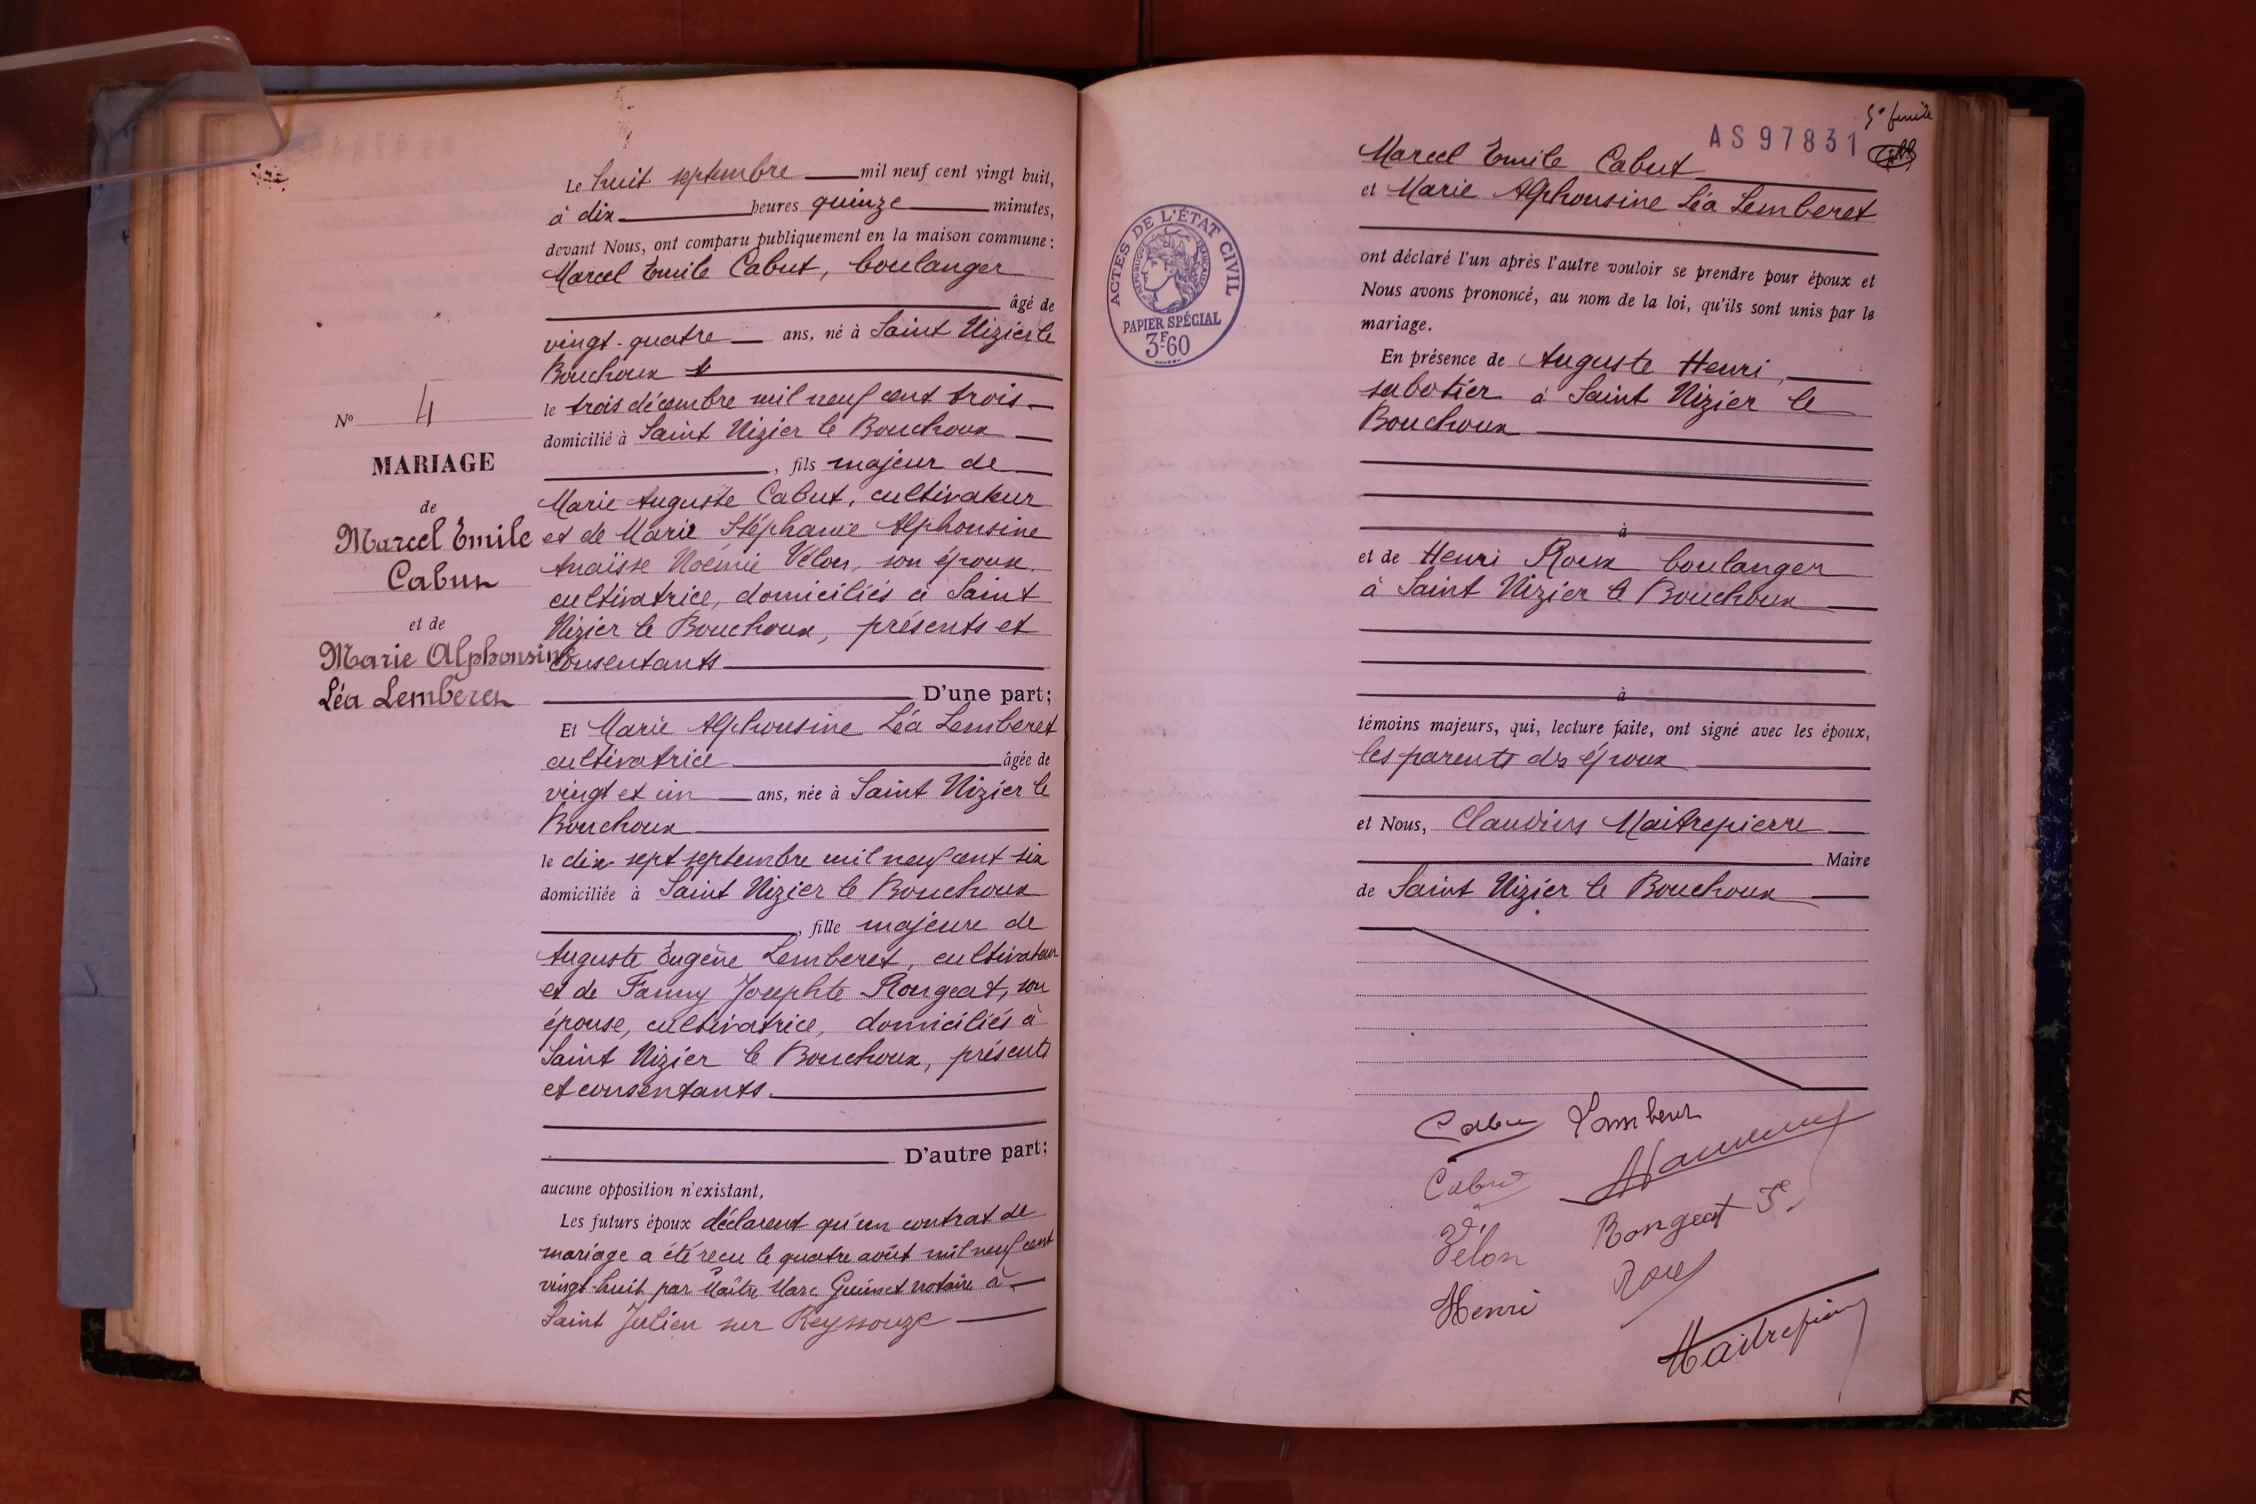 Le huit septembre mil neuf cent vingt huit,
à dix heures quinze minutes,
devant Nous, ont comparu publiquement en la maison commune :
Marcel Emile Cabut, boulanger
âgé de
vingt-quatre ans, né à Saint Nizier le
Bouchoux
le trois décembre mil neuf cent trois
domicilié à Saint Nizier le Bouchoux
, fils majeur de
Marie Auguste Cabut, cultivateur
et de Marie Stéphanie Alphonsine
Anaïsse Noémie Vélon, son épouse
cultivatrice, domiciliés à Saint
Nizier le Bouchoux, présents et
consentants
D'une part;
Nº 4
MARIAGE
de
Marcel Emile
Cabut
et de
Marie Alphonsine
Léa Lemberet
Et Marie Alphonsine Léa Lemberet
cultivatrice âgée de
vingt et un ans, née à Saint Nizier le
Bouchoux
le dix sept septembre mil neuf cent six
domiciliée à Saint Nizier le Bouchoux
, fille majeure de
Auguste Eugène Lemberet, cultivateur
et de Fanny Josephte Rongeat, son
épouse, cultivatrice, domiciliés à
Saint Nizier le Bouchoux, présents
et consentants.
D'autre part;
aucune opposition n'existant,
Les futurs époux déclarent qu'un contrat de
mariage a été recu le quatre août mil neuf cent
vingt-huit par Maître Marc notaire à
Saint Julien sur Reyssouze
5e feuille
AS 97831
Marcel Emile Cabut
et Marie Alphonsine Léa Lemberet
ACTES DE L'ÉTAT CIVIL
RÉPUBLIQUE FRANÇAISE
PAPIER SPÉCIAL
3F60
ont déclaré l'un après l'autre vouloir se prendre pour époux et
Nous avons prononcé, au nom de la loi, qu'ils sont unis par le
mariage.
En présence de Auguste Henri,
sabotier à Saint Nizier le
Bouchoux
à
et de Henri Roux boulanger
à Saint Nizier le Bouchoux
à
témoins majeurs, qui, lecture faite, ont signé avec les époux,
les parents des époux
et Nous, Claudius Maitrepierre
Maire
de Saint Nizier le Bouchoux
Cabut Lemberet
Cabut
Vélon Rongeat
Henri Roux
Maitrepierre